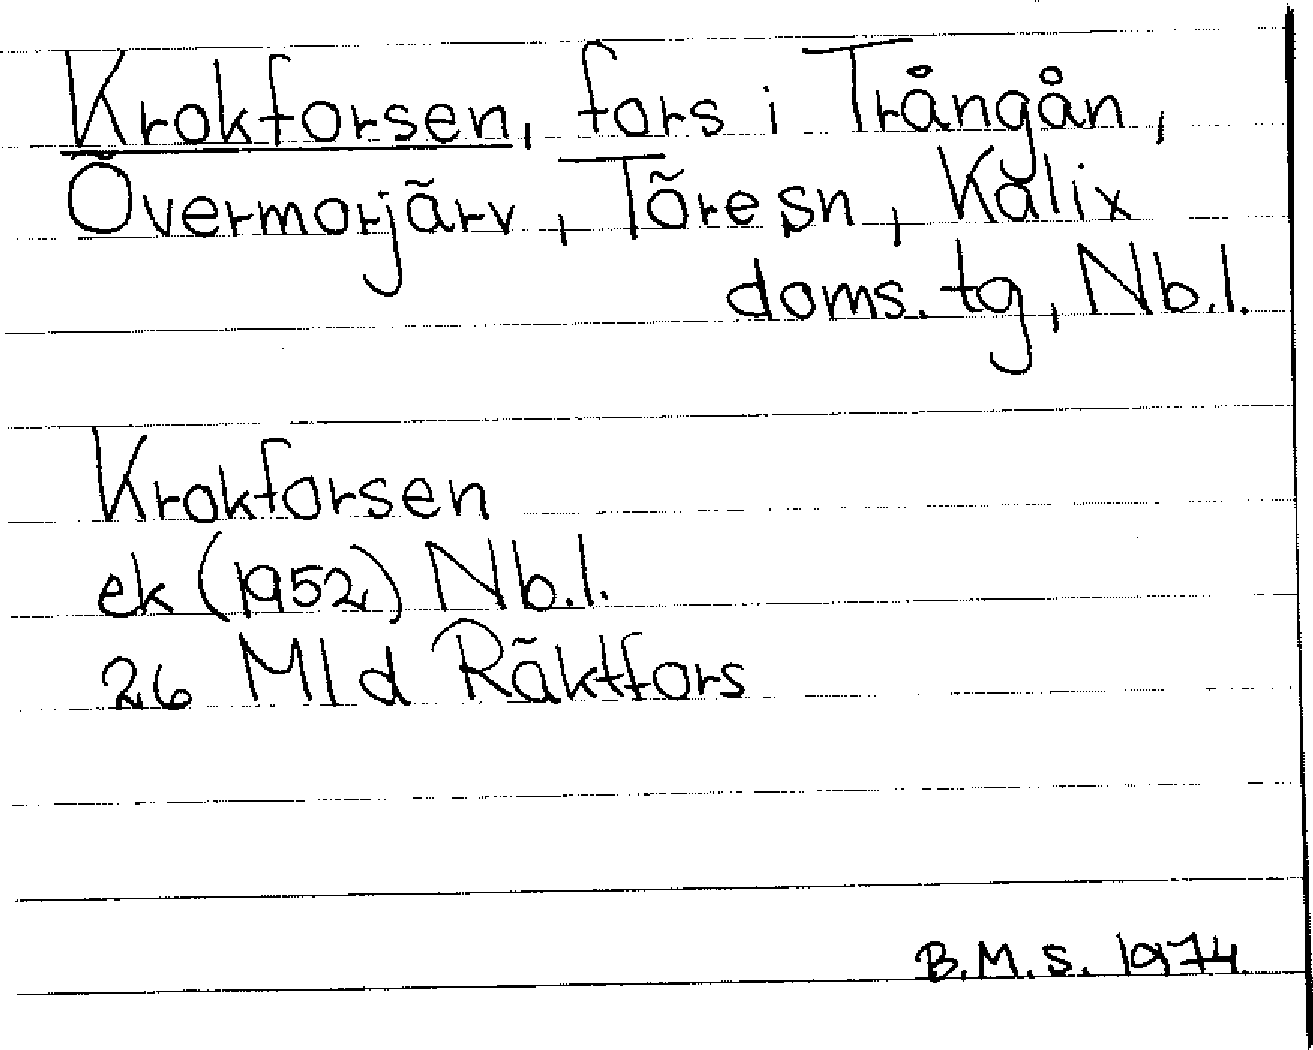 Krokforsen, fors i Trångån,
Övermorjärv, Töre sn, Kalix
doms. tg, Nb.l.
Krokforsen
ek (1952) Nb.l.
26 Mld Räktfors
B.M.S. 1974